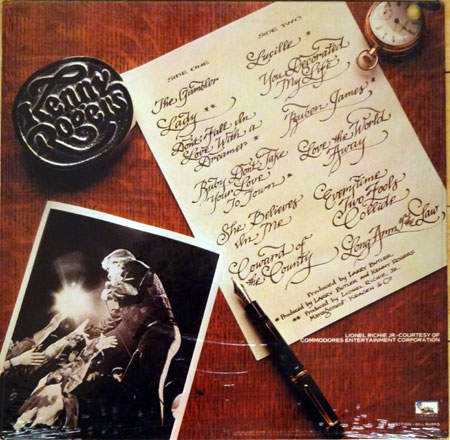 Kenny
Rogers
SIDE ONE
The Gambler
Lady **
Don't Fall In
Love With a
Dreamer *
Ruby Don't Take
Your Love
To Town *
She Believes
In Me
Coward of
the County
SIDE TWO
Lucille
You Decorated
My Life
Ruben James *
Love the World
Away
Everytime
Two Fools
Collide
Long Arm of the Law
Produced by LARRY BUTLER
* Produced by LARRY BUTLER and KENNY ROGERS
** Produced by LIONEL RICHIE JR.
MANAGEMENT: KRAGEN & CO
LIONEL RICHIE JR-COURTESY OF
COMMODORES ENTERTAINMENT CORPORATION
DIRECTION - BILL BURKS